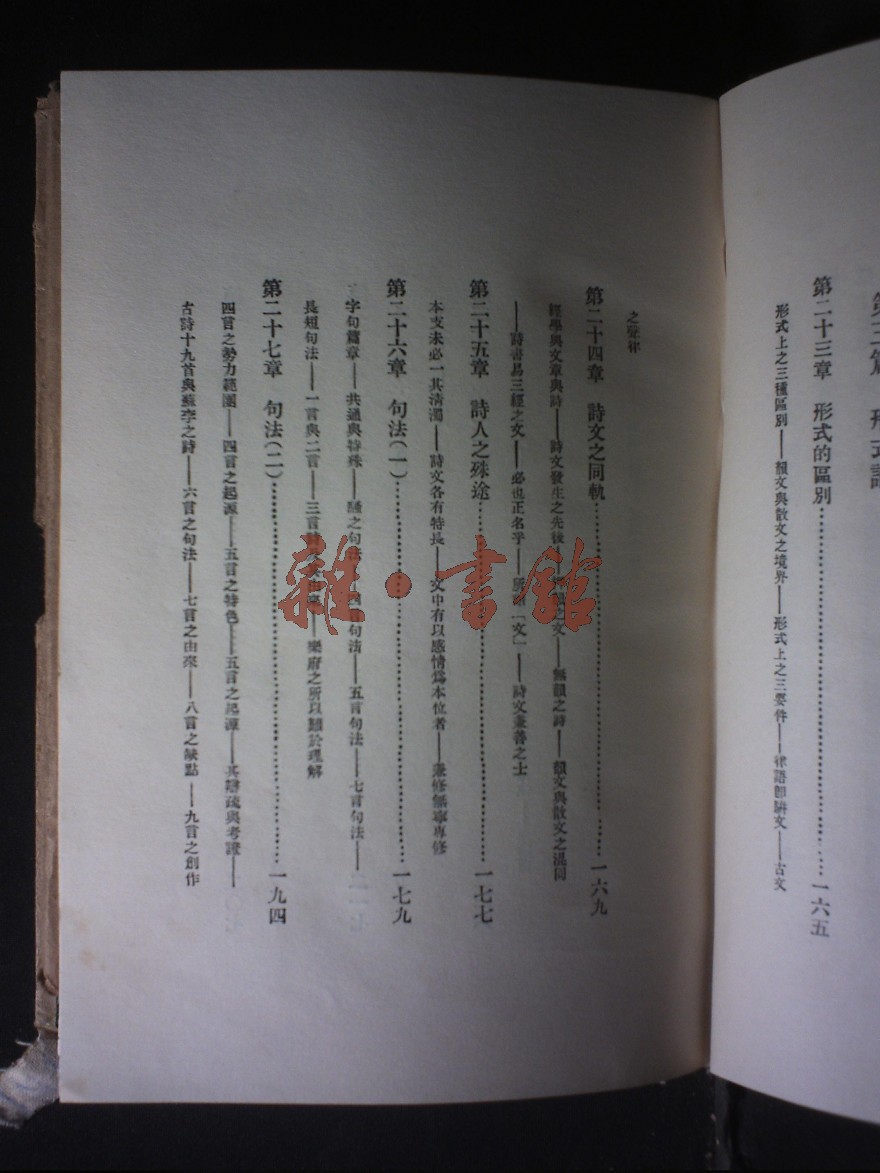 第三篇　形式論
第二十三章　形式的區別……一六五
形式上之三種區別——韻文與散文之境界——形式上之三要件——律語卽駢文——古文
之聲律
第二十四章　詩文之同軌……一六九
經學與文章與詩——詩文發生之先後——之文——無韻之詩——韻文與散文之混同
——詩書易三經之文——必也正名乎——所謂「文」——詩文兼善之士
第二十五章　詩人之殊途……一七七
本支未必一其清濁——詩文各有特長——文中有以感情爲本位者——兼修無寧專修
第二十六章　句法(一)……一七九
字句篇章——共通與特殊——騷之句法——四言句法——五言句法——七言句法——
長短句法——一言與二言——三言——樂府之所以難於理解
第二十七章　句法(二)……一九四
四言之勢力範圍——四言之起源——五言之特色——五言之起源——其辯疏與考證——
古詩十九首與蘇李之詩——六言之句法——七言之由來——八言之缺點——九言之創作
雜·書館